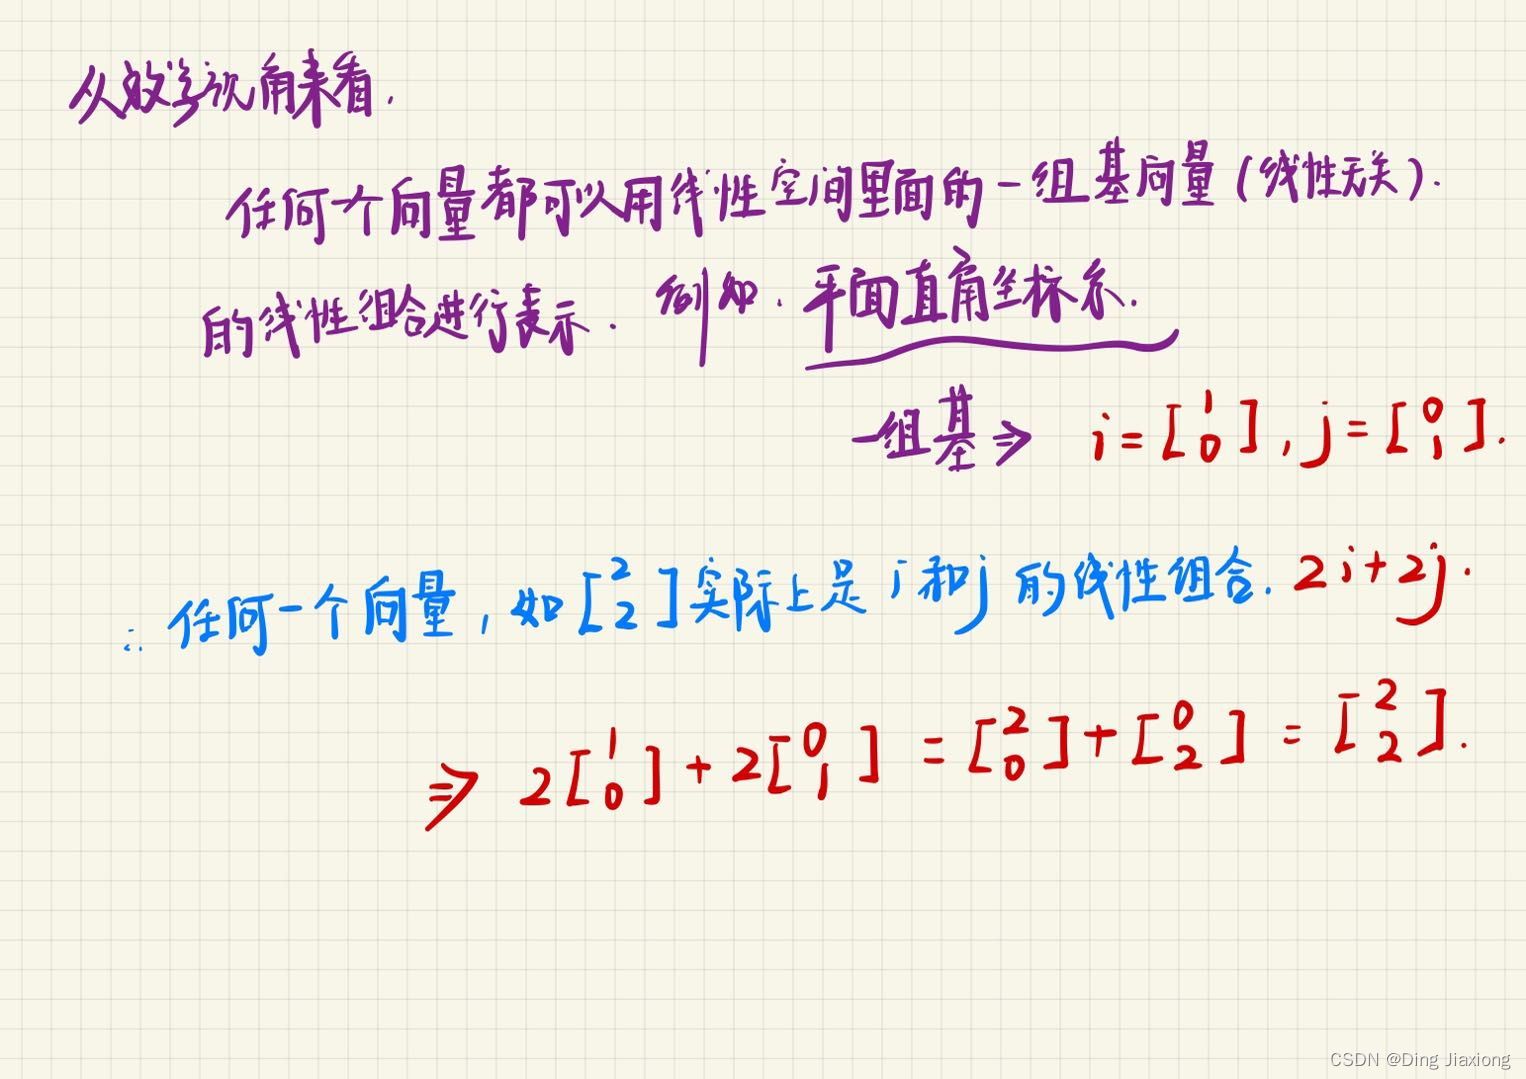 从数学视角来看.
任何个向量都可以用线性空间里面的一组基向量(线性无关).
的线性组合进行表示. 例如. 平面直角坐标系.
一组基⇒ i=[1 0], j=[0 1].
∴ 任何一个向量, 如[2 2]实际上是 i 和 j 的线性组合. 2i+2j.
⇒ 2[1 0]+2[0 1] = [2 0]+[0 2] = [2 2].
CSDN @Ding Jiaxiong